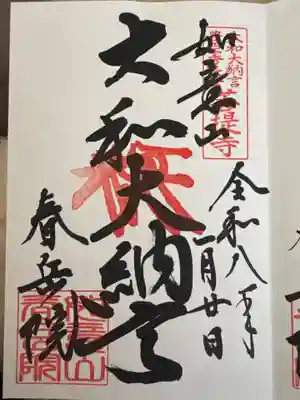 大和大納言
菩提寺
如意山
令和八年
一月廿日
大和大納言
春岳院